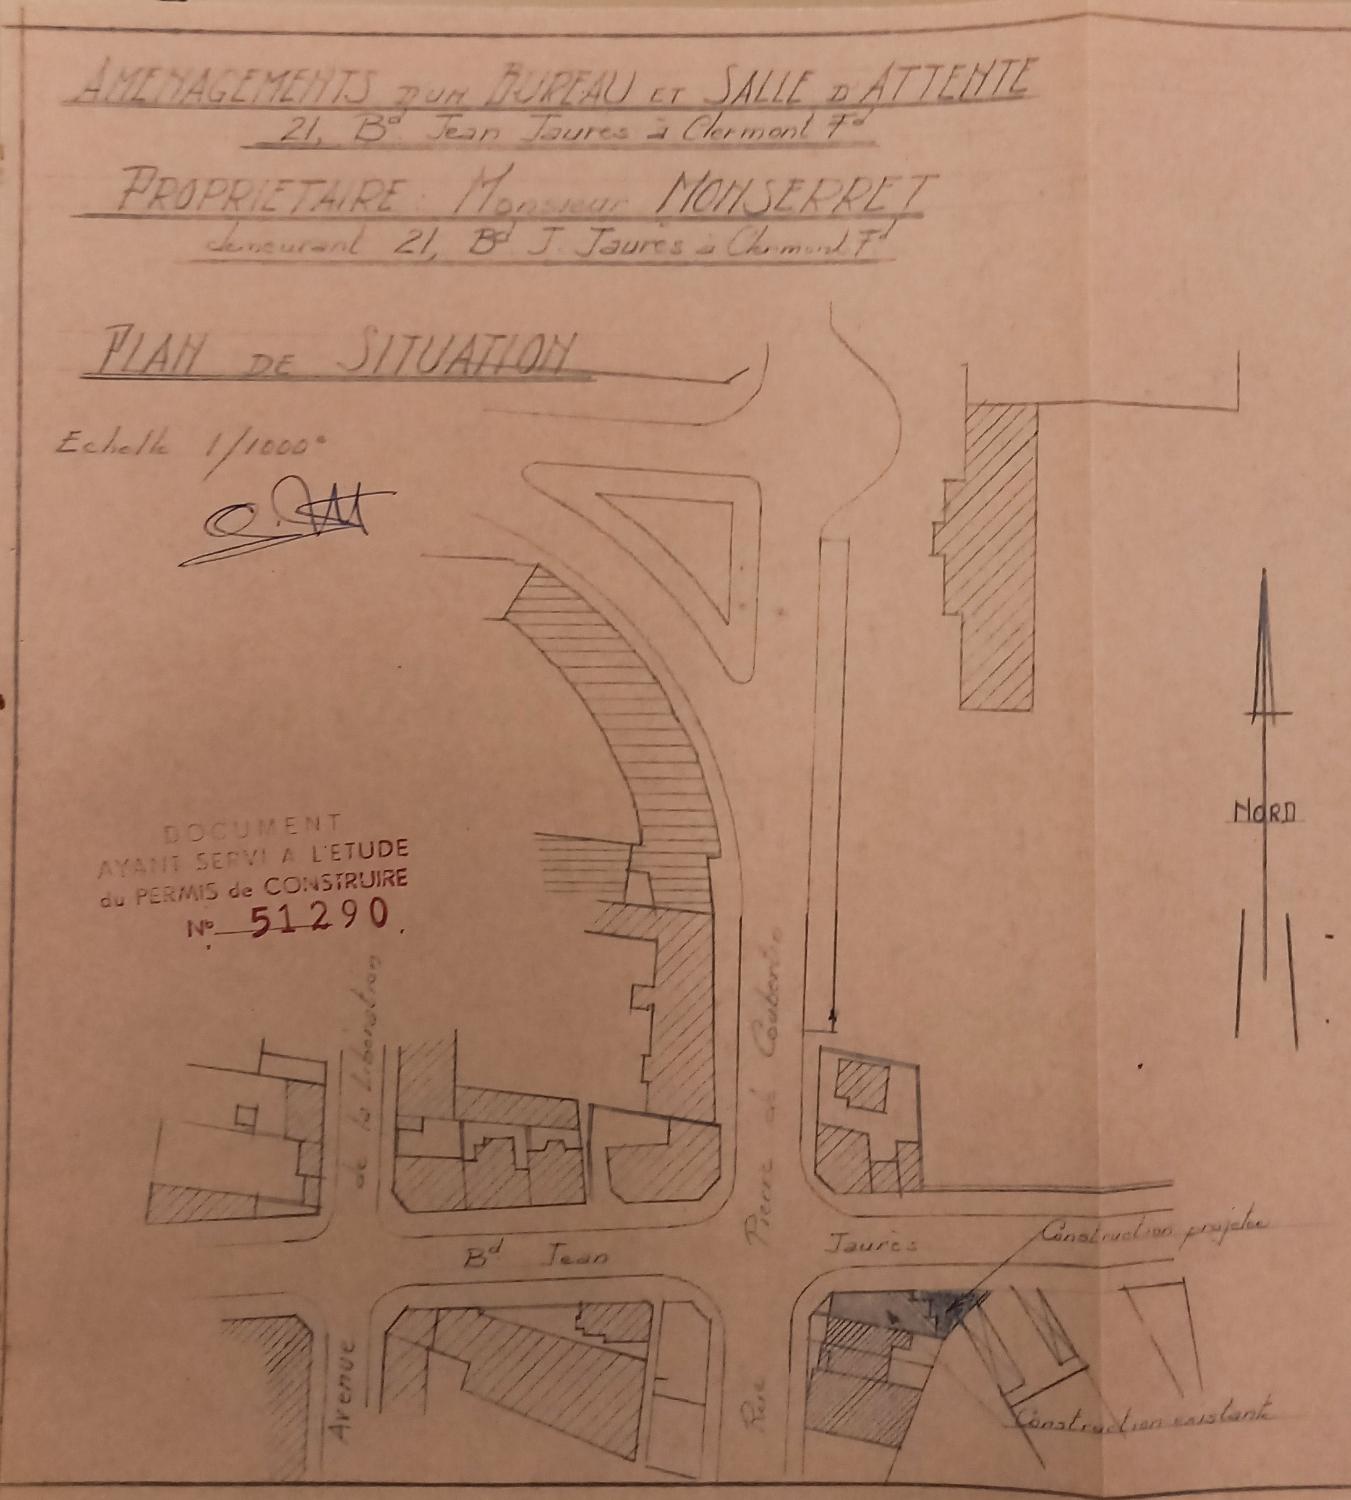 AMENAGEMENTS D'UN BUREAU ET SALLE D'ATTENTE
21, Bd Jean Jaurès à Clermont Fd
PROPRIETAIRE : Monsieur MONSERRET
demeurant 21, Bd J. Jaurès à Clermont Fd
PLAN DE SITUATION
Echelle 1/1000e
NORD
DOCUMENT
AYANT SERVI A L'ETUDE
du PERMIS de CONSTRUIRE
No 51290
Avenue de la Libération
Rue Pierre de Coubertin
Bd Jean Jaurès
Construction projetée
Construction existante